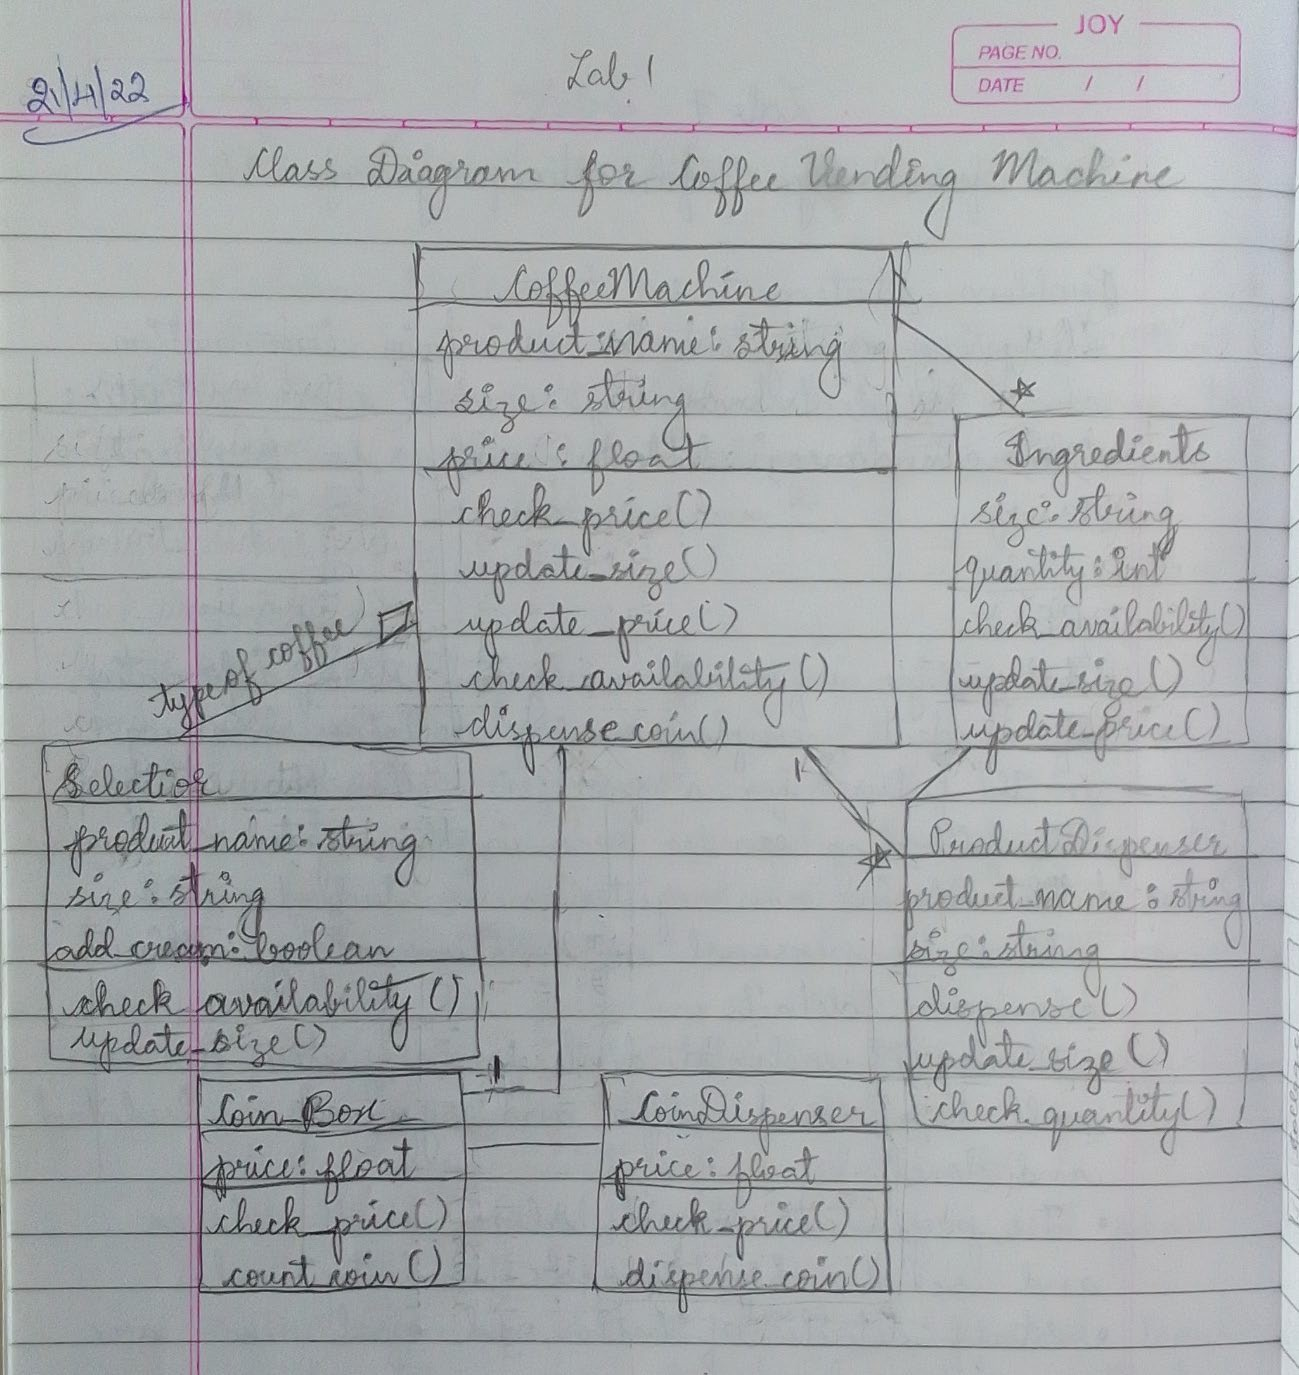 JOY
PAGE NO.
DATE / /
21/4/22
Lab 1
Class Diagram for Coffee Vending Machine
CoffeeMachine
product_name: string
size: string
price: float
check_price()
update_size()
update_price()
check_availability()
dispense_coin()
*
Ingredients
size: string
quantity: int
check_availability()
update_size()
update_price()
type of coffee
Selection
product_name: string
size: string
add_cream: boolean
check_availability()
update_size()
1
*
ProductDispenser
product_name: string
size: string
dispense()
update_size()
check_quantity()
1
Coin_Box
price: float
check_price()
count_coin()
CoinDispenser
price: float
check_price()
dispense_coin()